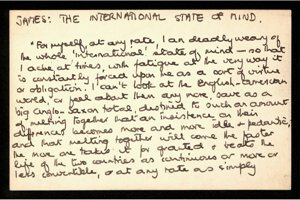 JAMES: THE INTERNATIONAL STATE OF MIND.
"For myself, at any rate, I am deadly weary of
the whole 'international' state of mind — so that
I ache, at times, with fatigue at the way it
is constantly forced upon me as a sort of virtue
or obligation. I can't look at the English-American
world, or feel about them, any more, save as a
big Anglo-Saxon total, destined to such an amount
of melting together that an insistence on their
differences becomes more and more idle & pedantic;
and that melting together will come the faster
the more one takes it for granted & treats the
life of the two countries as continuous or more or
less convertible, or at any rate as simply